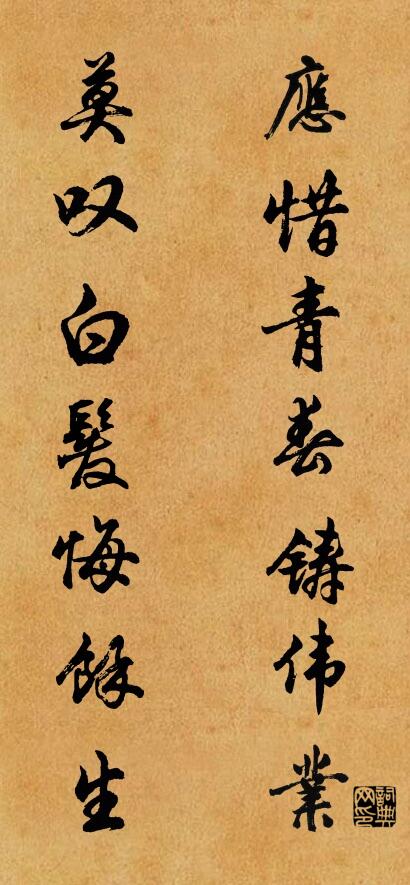 應惜青春鑄伟業
莫叹白髮悔餘生
詞典网印